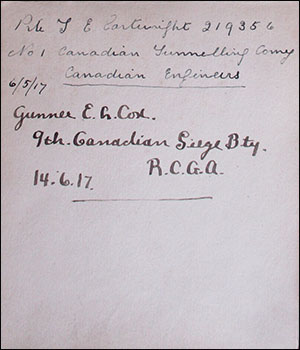 Pte T E Cartwright 219356
No 1 Canadian Tunnelling Comp
Canadian Engineers
6/5/17
Gunner E. L. Cox.
9th. Canadian Siege Bty.
R.C.G.A.
14.6.17.